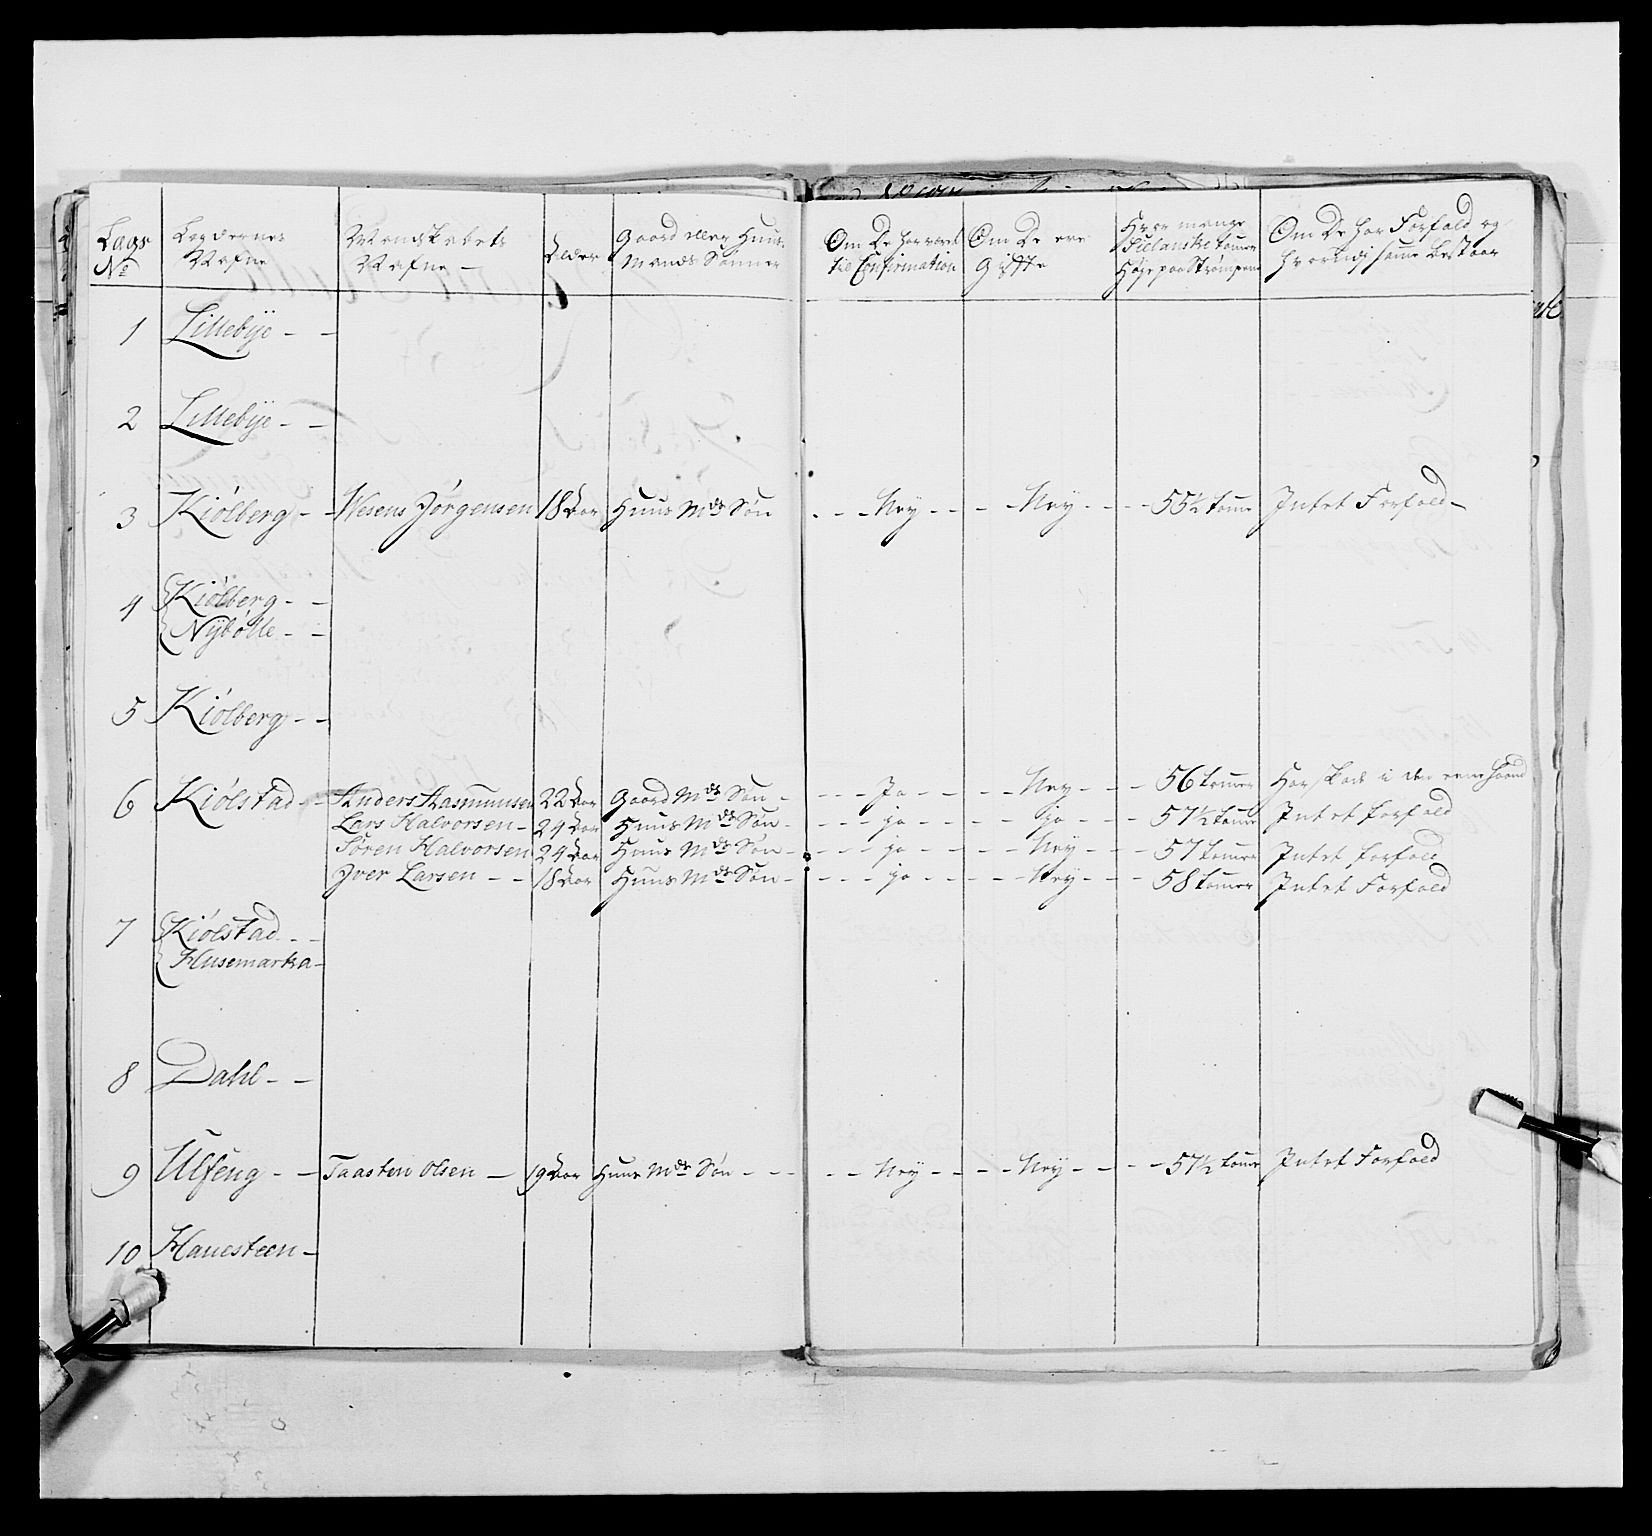 Lags No | Legdernes Nafne | Mandskabets Nafne | Alder | Gaard eller Huus Mands Sønner | Om De har været til Confirmation | Om De ere Gifte | Hvor mange Sielanske tommer Høye paa Strømpene | Om De har Forfald og hvorudj same bestaar
1 Lillebÿe - -
2 Lillebÿe - -
3 Kiólberg - - Wesens Jórgensen 18 Aar Huus Mds Søn - - - Ney - - - Ney - - - 55½ tomr Intet Forfald -
4 Kiólberg - -
Nÿbólle - -
5 Kiólberg - -
6 Kiólstad - - Anders Rasmunsen 22 Aar Gaard Mds Søn - - - - Ja - - - - Ney - - - 56 tommer Har skade i den eene haand
Lars Halvorsen - 24 Aar Huus Mds Søn - - - - ja - - - - ja - - - 57½ tomr Intet forfald
Sóren Halvorsen 24 Aar Huus Mds Søn - - - - ja - - - - Ney - - - 57 tommer Intet forfald
Iver Larsen - - 18 Aar Huus Mds Søn - - - - ja - - - - Ney - - - 58 tommer Intet Forfald
7 Kiólstad - -
Husemarka -
8 Dahl - -
9 Ulfeng - - Taasten Olsen - 19 Aar Huus Mds Søn - - - - - Ney - - - - Ney - - - - 57½ tomr Intet Forfald
10 Hauesteen -